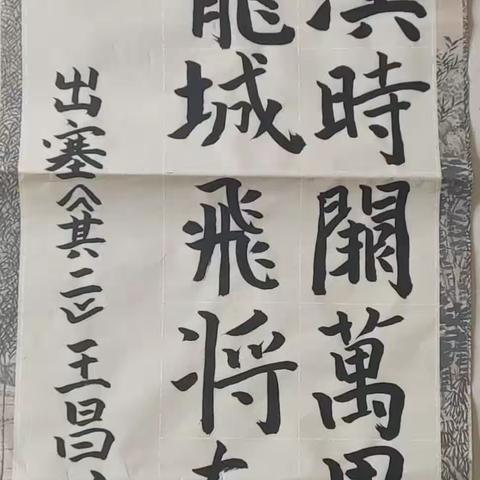 漢時關萬里
龍城飛將在
出塞《其二》王昌